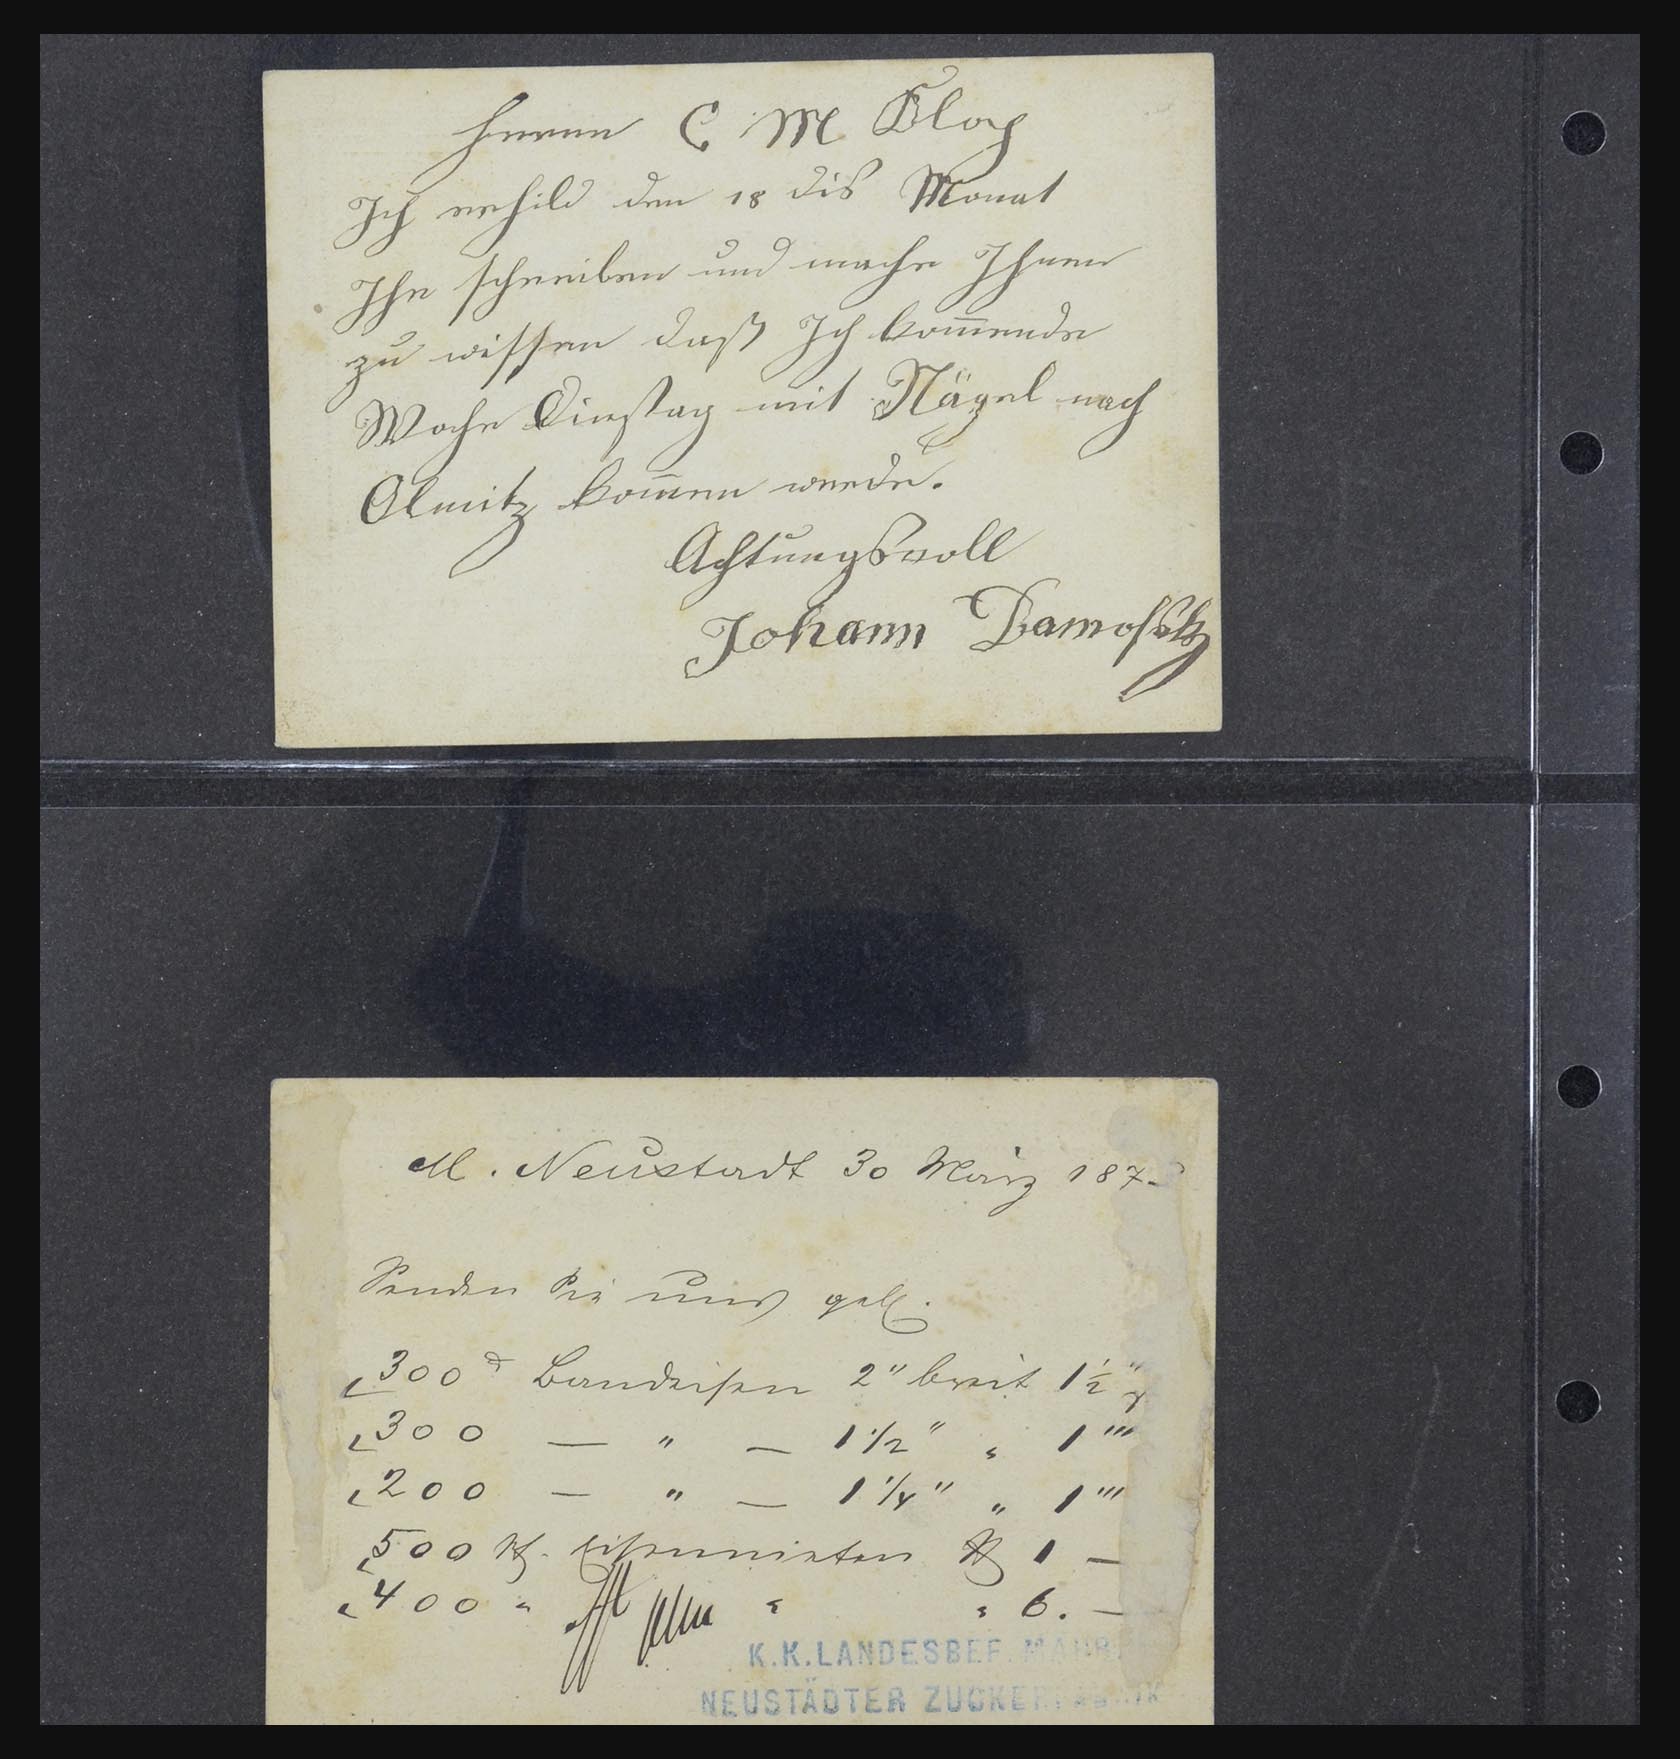 Herrn C M Bloch
Ich erhild den 18 dis Monat
Ihr schreiben und mache Ihnen
zu wissen daß Ich kom̄ende
Woche Dinstag mit Nägel nach
Olmitz kom̄en werde.
Achtungsvoll
Johann
M. Neustadt 30 März 187
Senden Sie uns gefl.
300 Bandeisen 2" breit 1½"
300 — " — 1 1/2" " 1'''
200 — " — 1 1/4" " 1'''
500 Eisennieten 1 —
400 " " " 6. —
K.K. LANDESBEF. MÄHR.
NEUSTÄDTER ZUCKERFABRIK